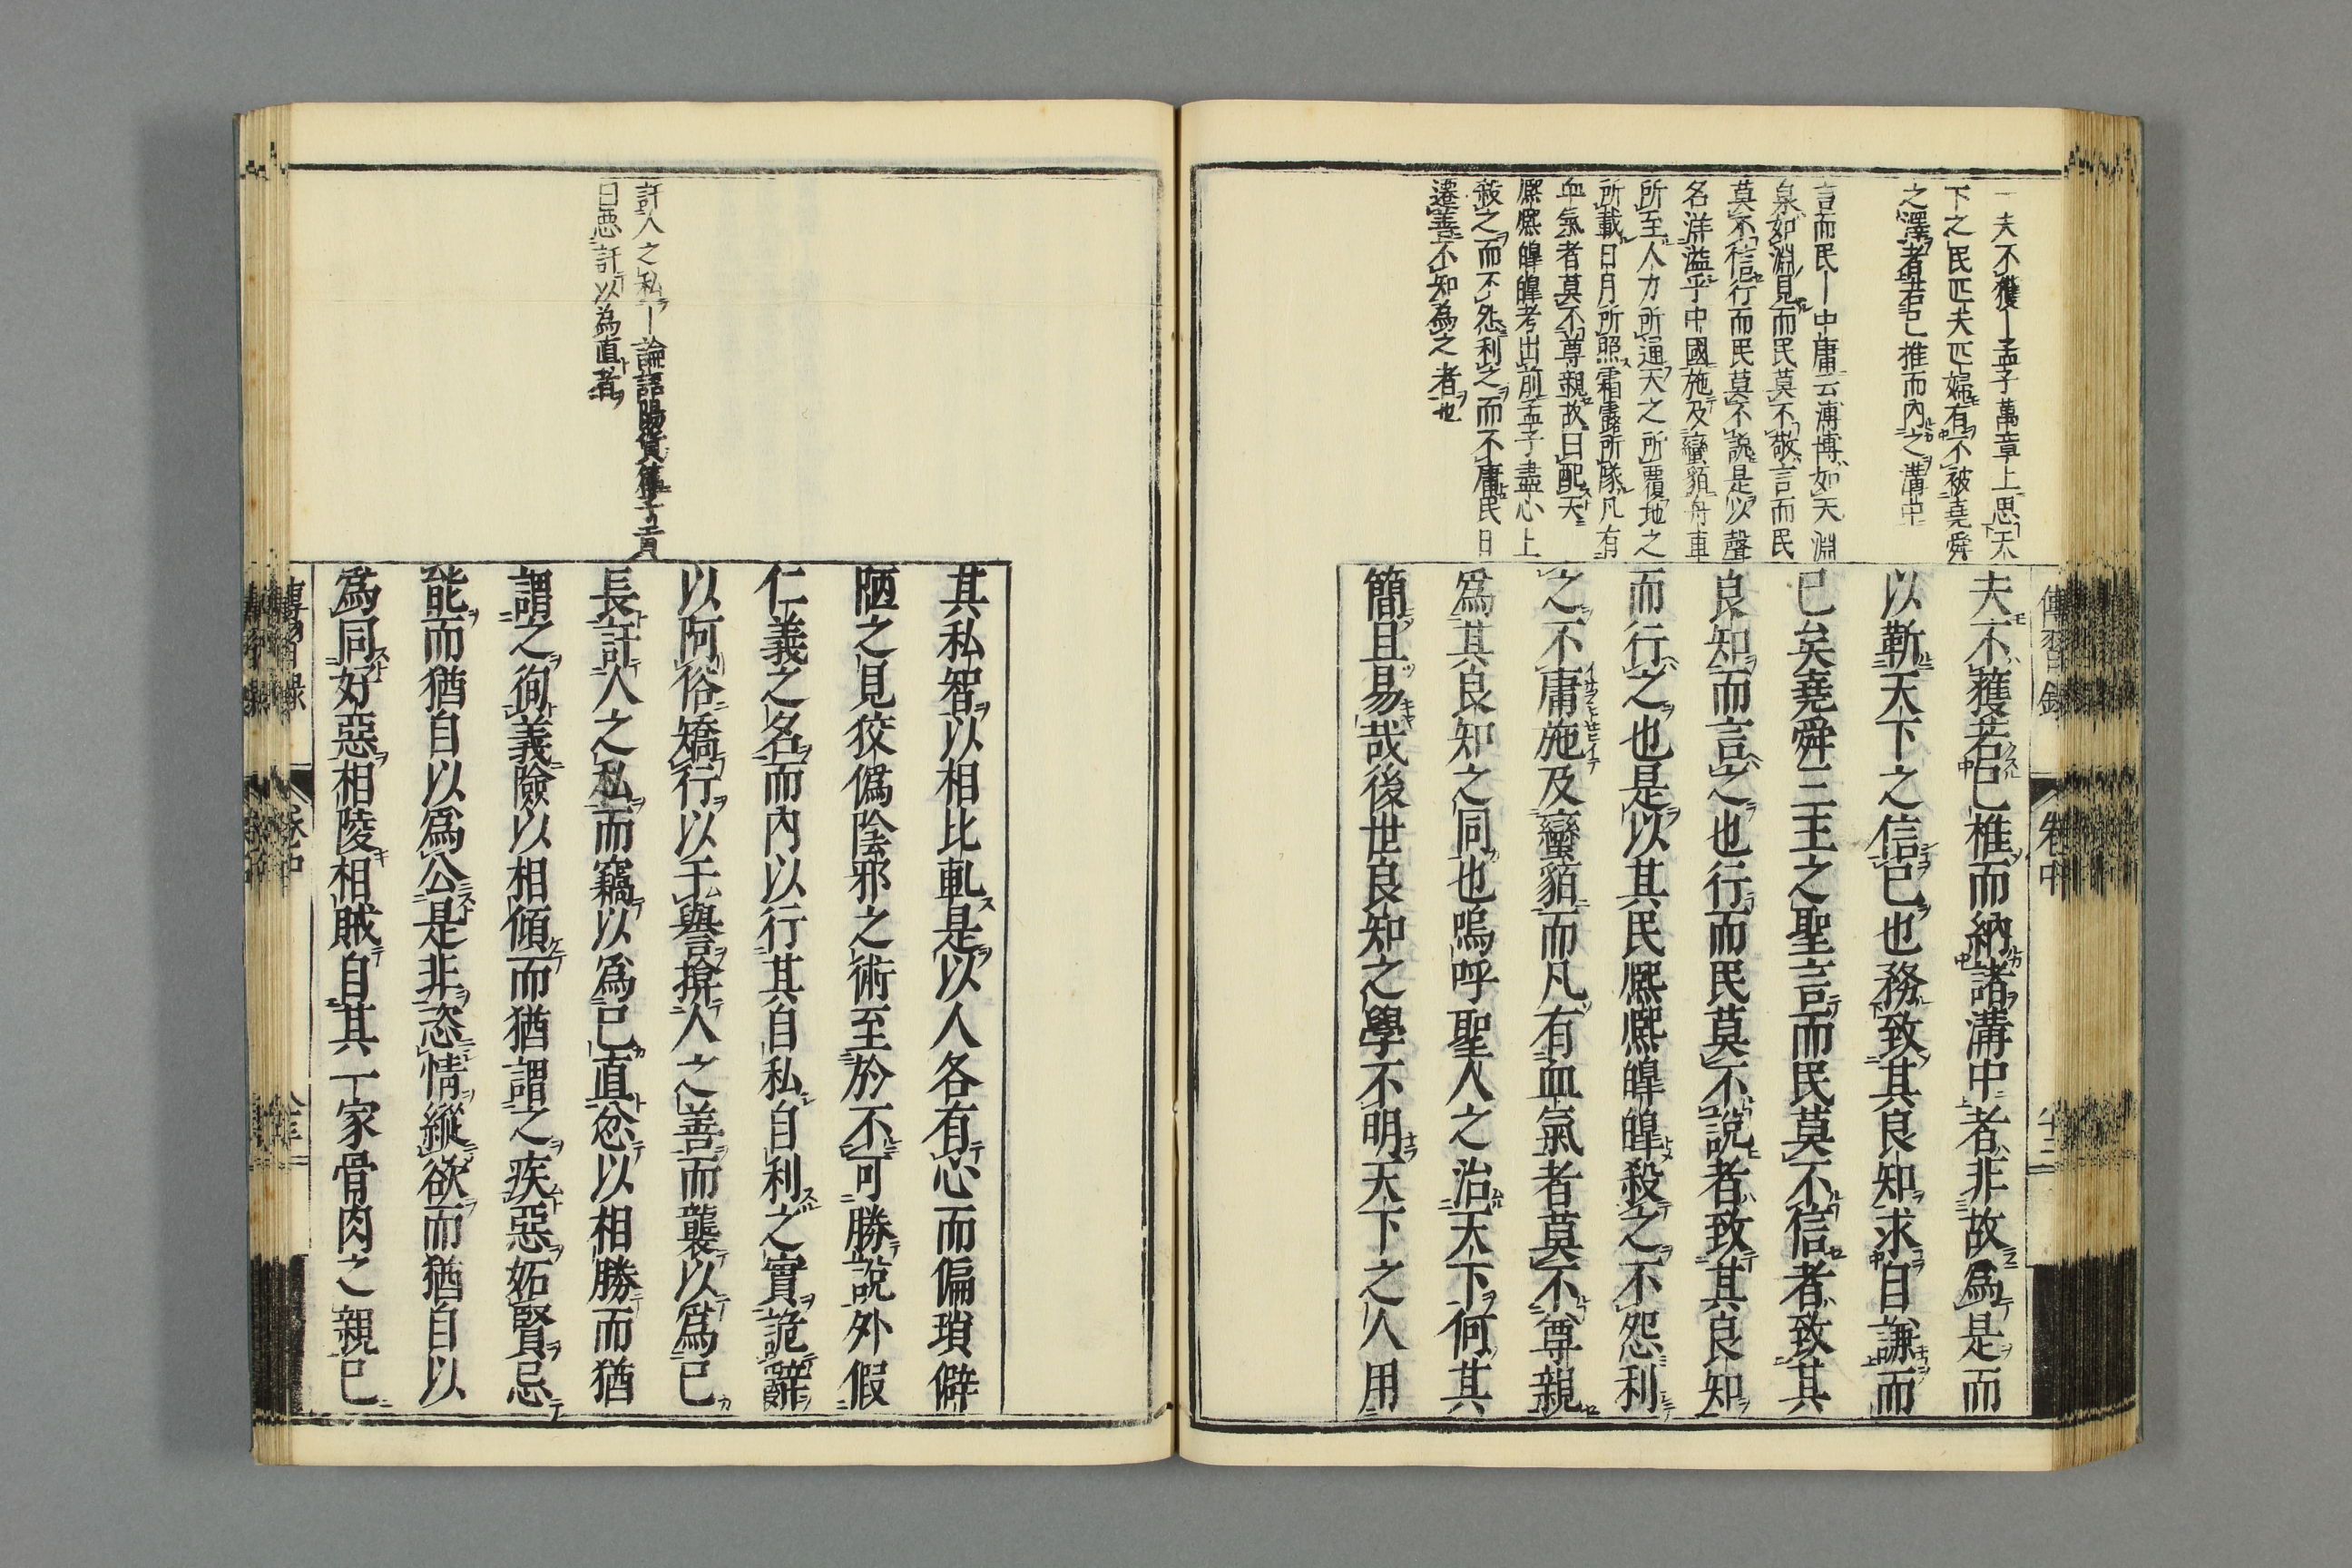 一夫不獲｜孟子萬章上思天
下之民匹夫匹婦有不被堯舜
之澤者若己推而內之溝中
言而民｜中庸云溥博如天淵
泉如淵見而民莫不敬言而民
莫不信行而民莫不說是以聲
名洋溢乎中國施及蠻貊舟車
所至人力所通天之所覆地之
所載日月所照霜露所隊凡有
血氣者莫不尊親故曰配天
熈熈皥皥考出前孟子盡心上
殺之而不怨利之而不庸民日
遷善不知為之者也
夫不獲若已推而納諸溝中者非故爲是而
以蘄天下之信已也務致其良知求自謙而
已矣堯舜三王之聖言而民莫不信者致其
良知而言之也行而民莫不說者致其良知
而行之也是以其民熈熈皥皥殺之不怨利
之不庸施及蠻貊而凡有血氣者莫不尊親
爲其良知之同也嗚呼聖人之治天下何其
簡且易哉後世良知之學不明天下之人用
傳習錄
卷中
訐人之私｜論語陽貨篇子貢
曰惡訐以為直者
其私智以相比軋是以人各有心而偏瑣僻
陋之見狡僞陰邪之術至於不可勝說外假
仁義之名而內以行其自私自利之實詭辭
以阿俗矯行以干譽揜人之善而襲以爲已
長訐人之私而竊以爲已直忿以相勝而猶
謂之徇義險以相傾而猶謂之疾惡妬賢忌
能而猶自以爲公是非恣情縱欲而猶自以
爲同好惡相陵相賊自其一家骨肉之親已